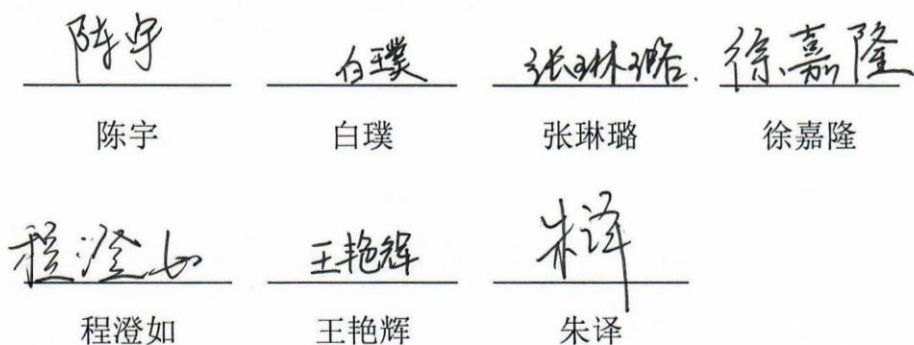 陈宇 白璞 张琳璐. 徐嘉隆
陈宇 白璞 张琳璐 徐嘉隆
程澄如 王艳辉 朱译
程澄如 王艳辉 朱译